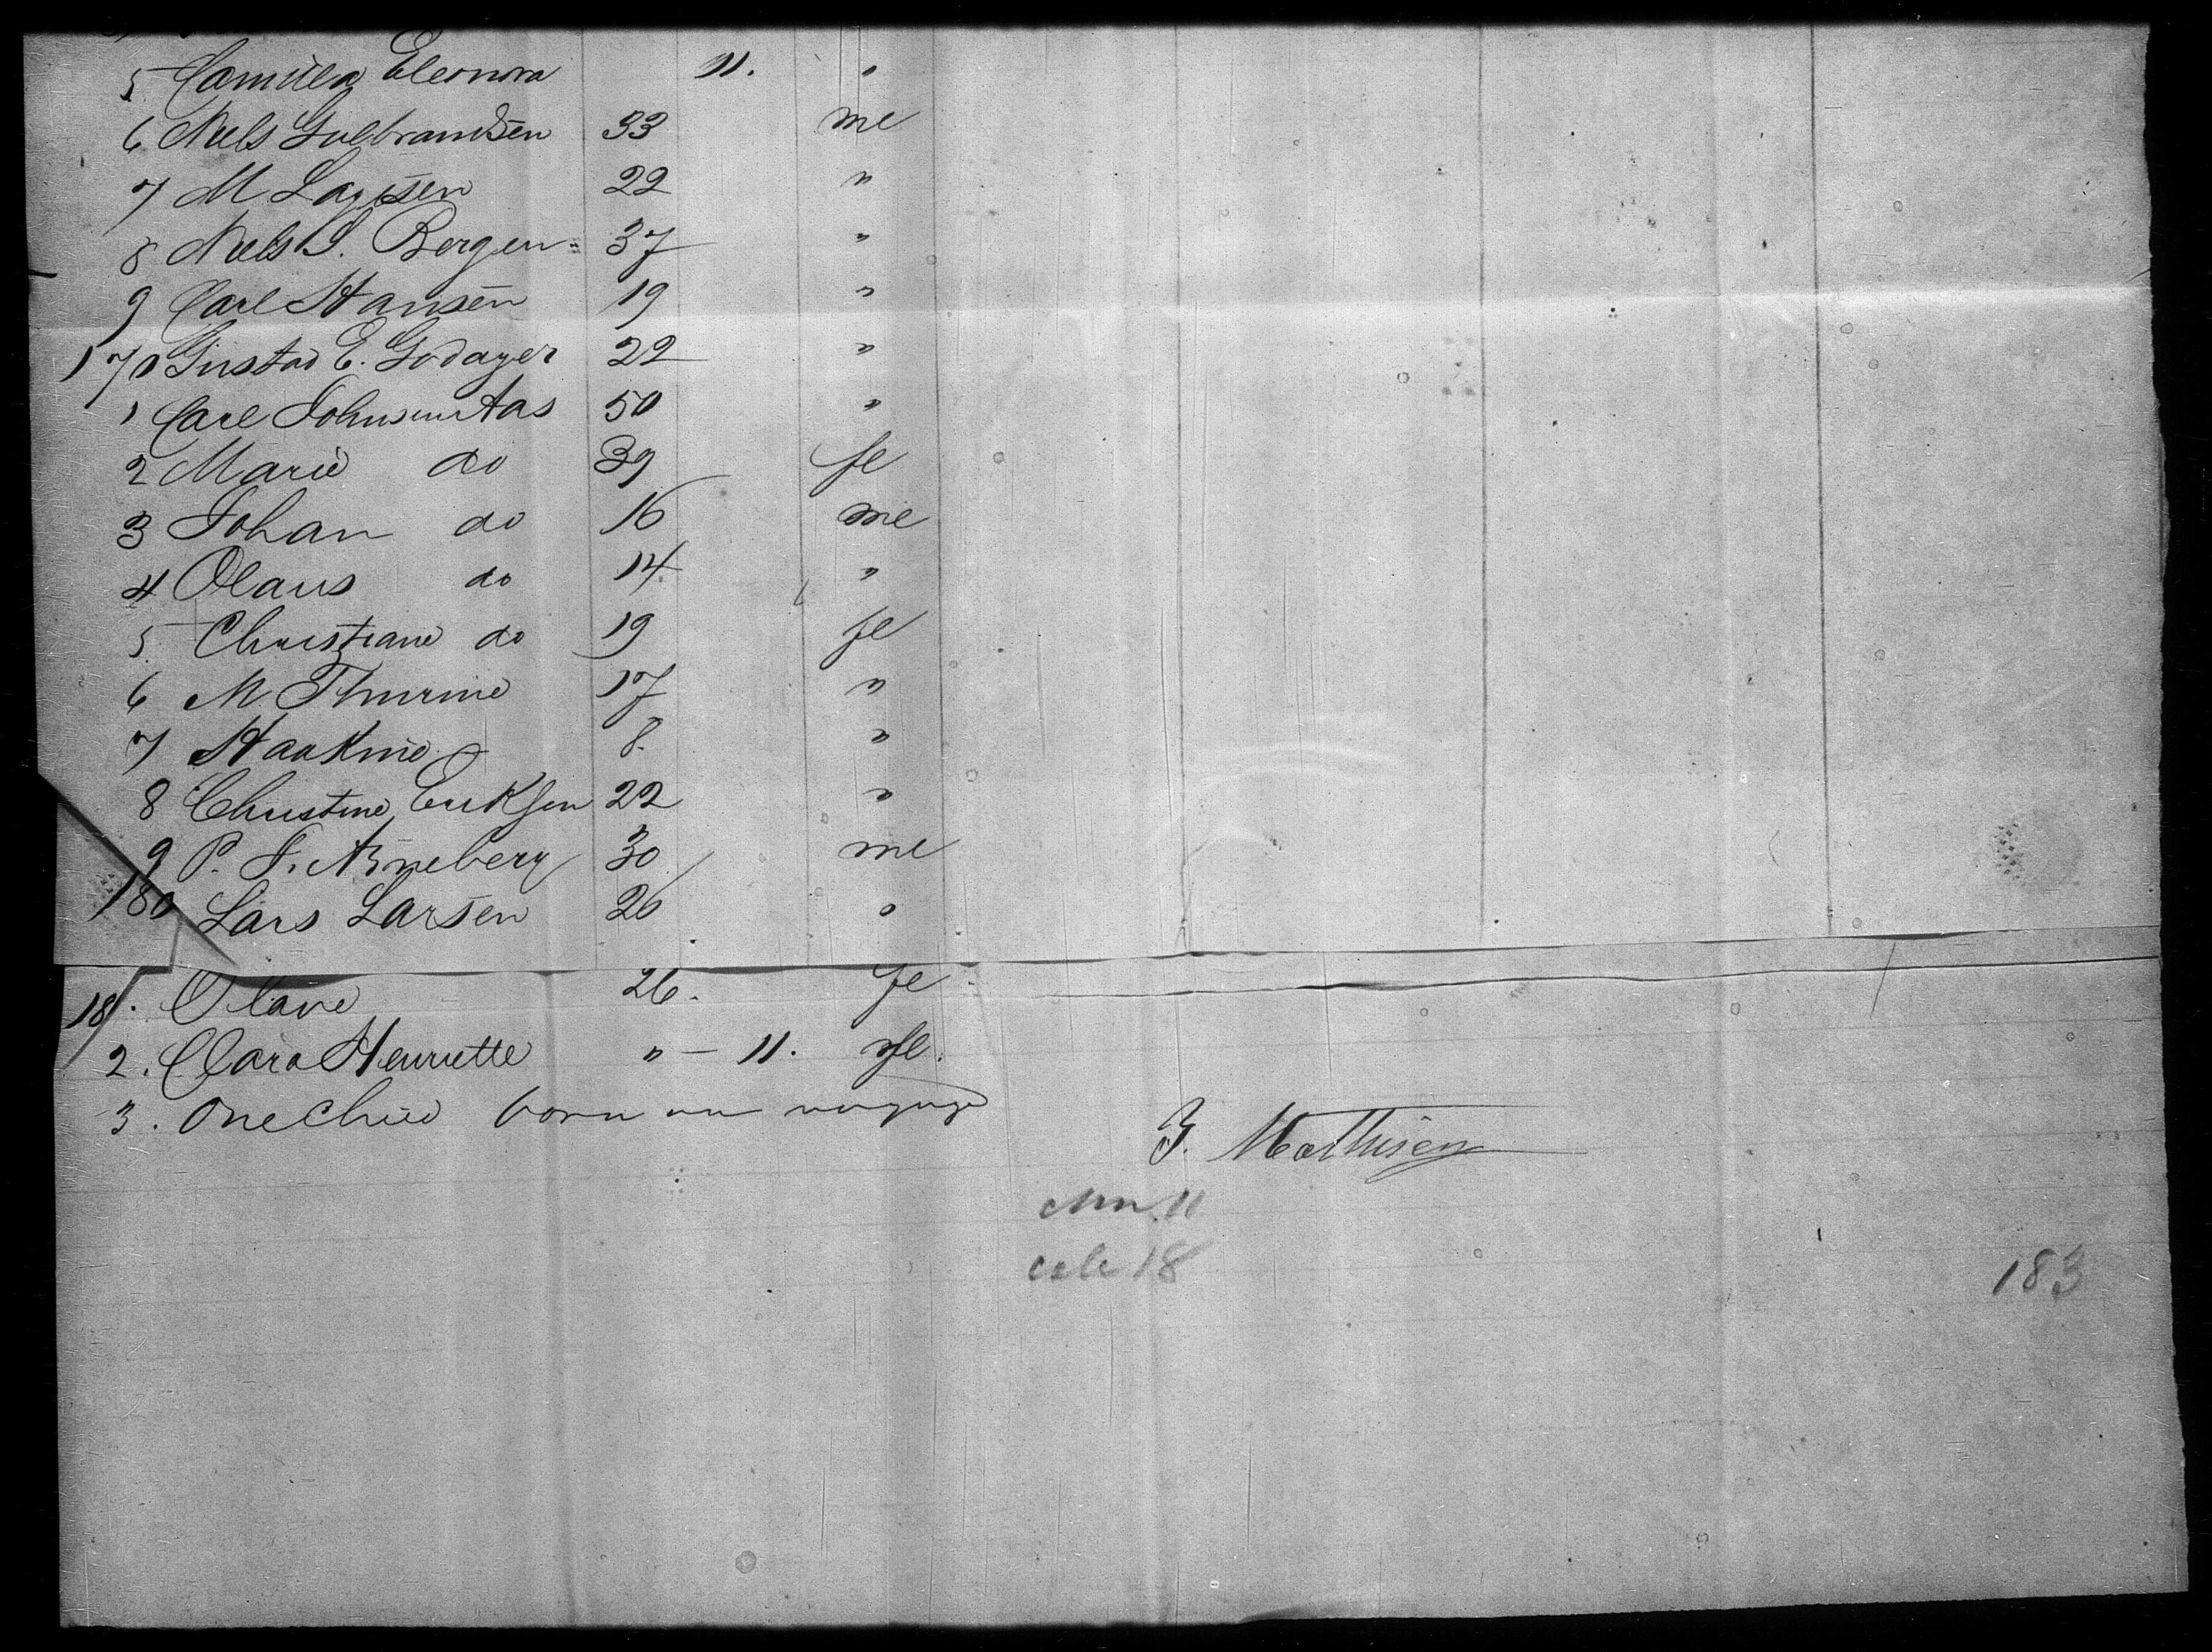 5 Camilla Eleonora 11. "
6 Niels Gulbrandsen 33 me
7 M 22 "
8 Niels S. Bergen 37 "
9 Carl Hansen 19 "
170 Gustav E. Godager 22 "
1 Carl Johnsen Aas 50 "
2 Marie do 39 fe
3 Johan do 16 me
4 Olaus do 14 "
5 Christiane do 19 fe
6 M Thurine 17 "
7 Haakine 8. "
8 Christine Eriksen 22 "
9 P. J. Arneberg 30 me
180 Lars Larsen 26 "
181. Olave 26. fe
2. Clara Henriette " - 11. fe.
3. One Child born on voyage
J. Mathisen
11
cele 18
183